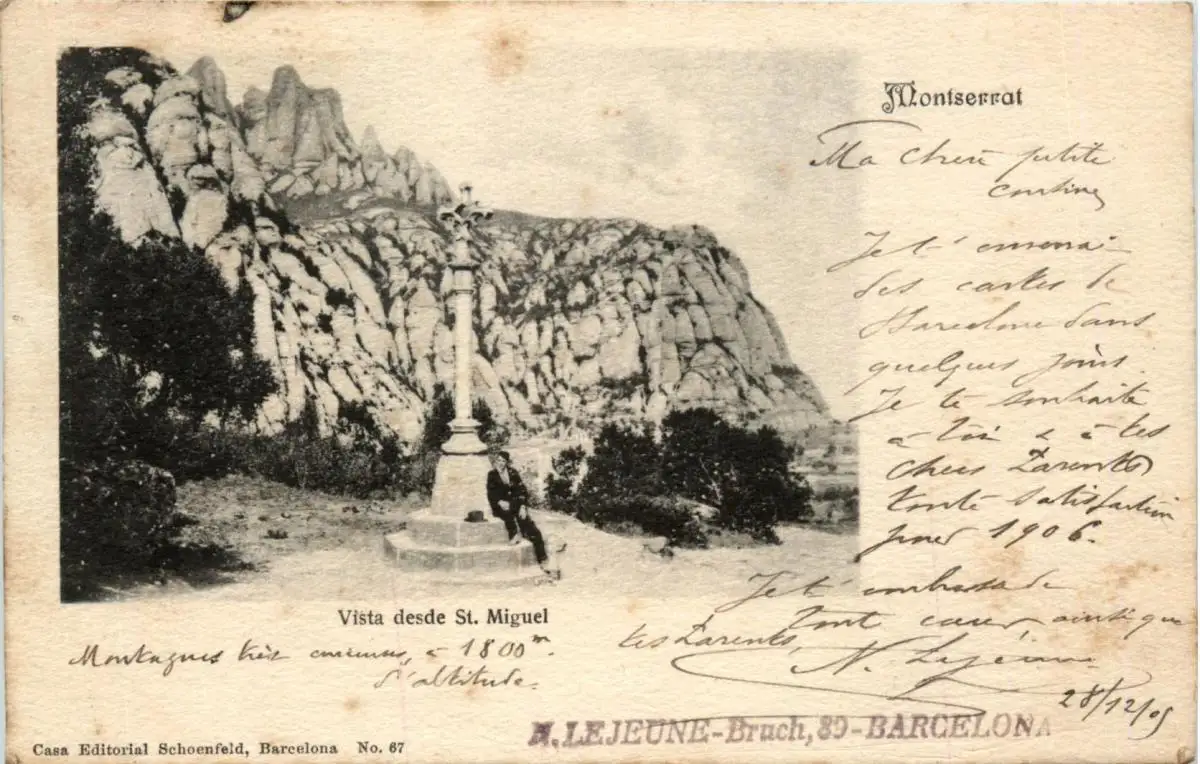 Montserrat
Ma chère petite
cousine
Je t'enverrai
des cartes de
Barcelone dans
quelques jours.
Je te souhaite
à toi & à tes
chers Parents
toute satisfaction
pour 1906.
Je t'embrasse de
tout coeur ainsi que
tes Parents,
N. Lejeune
28/12/05
Vista desde St. Miguel
Montagnes très curieuses, à 1800m.
d'altitude.
N. LEJEUNE-Bruch, 89-BARCELONA
Casa Editorial Schoenfeld, Barcelona No. 67